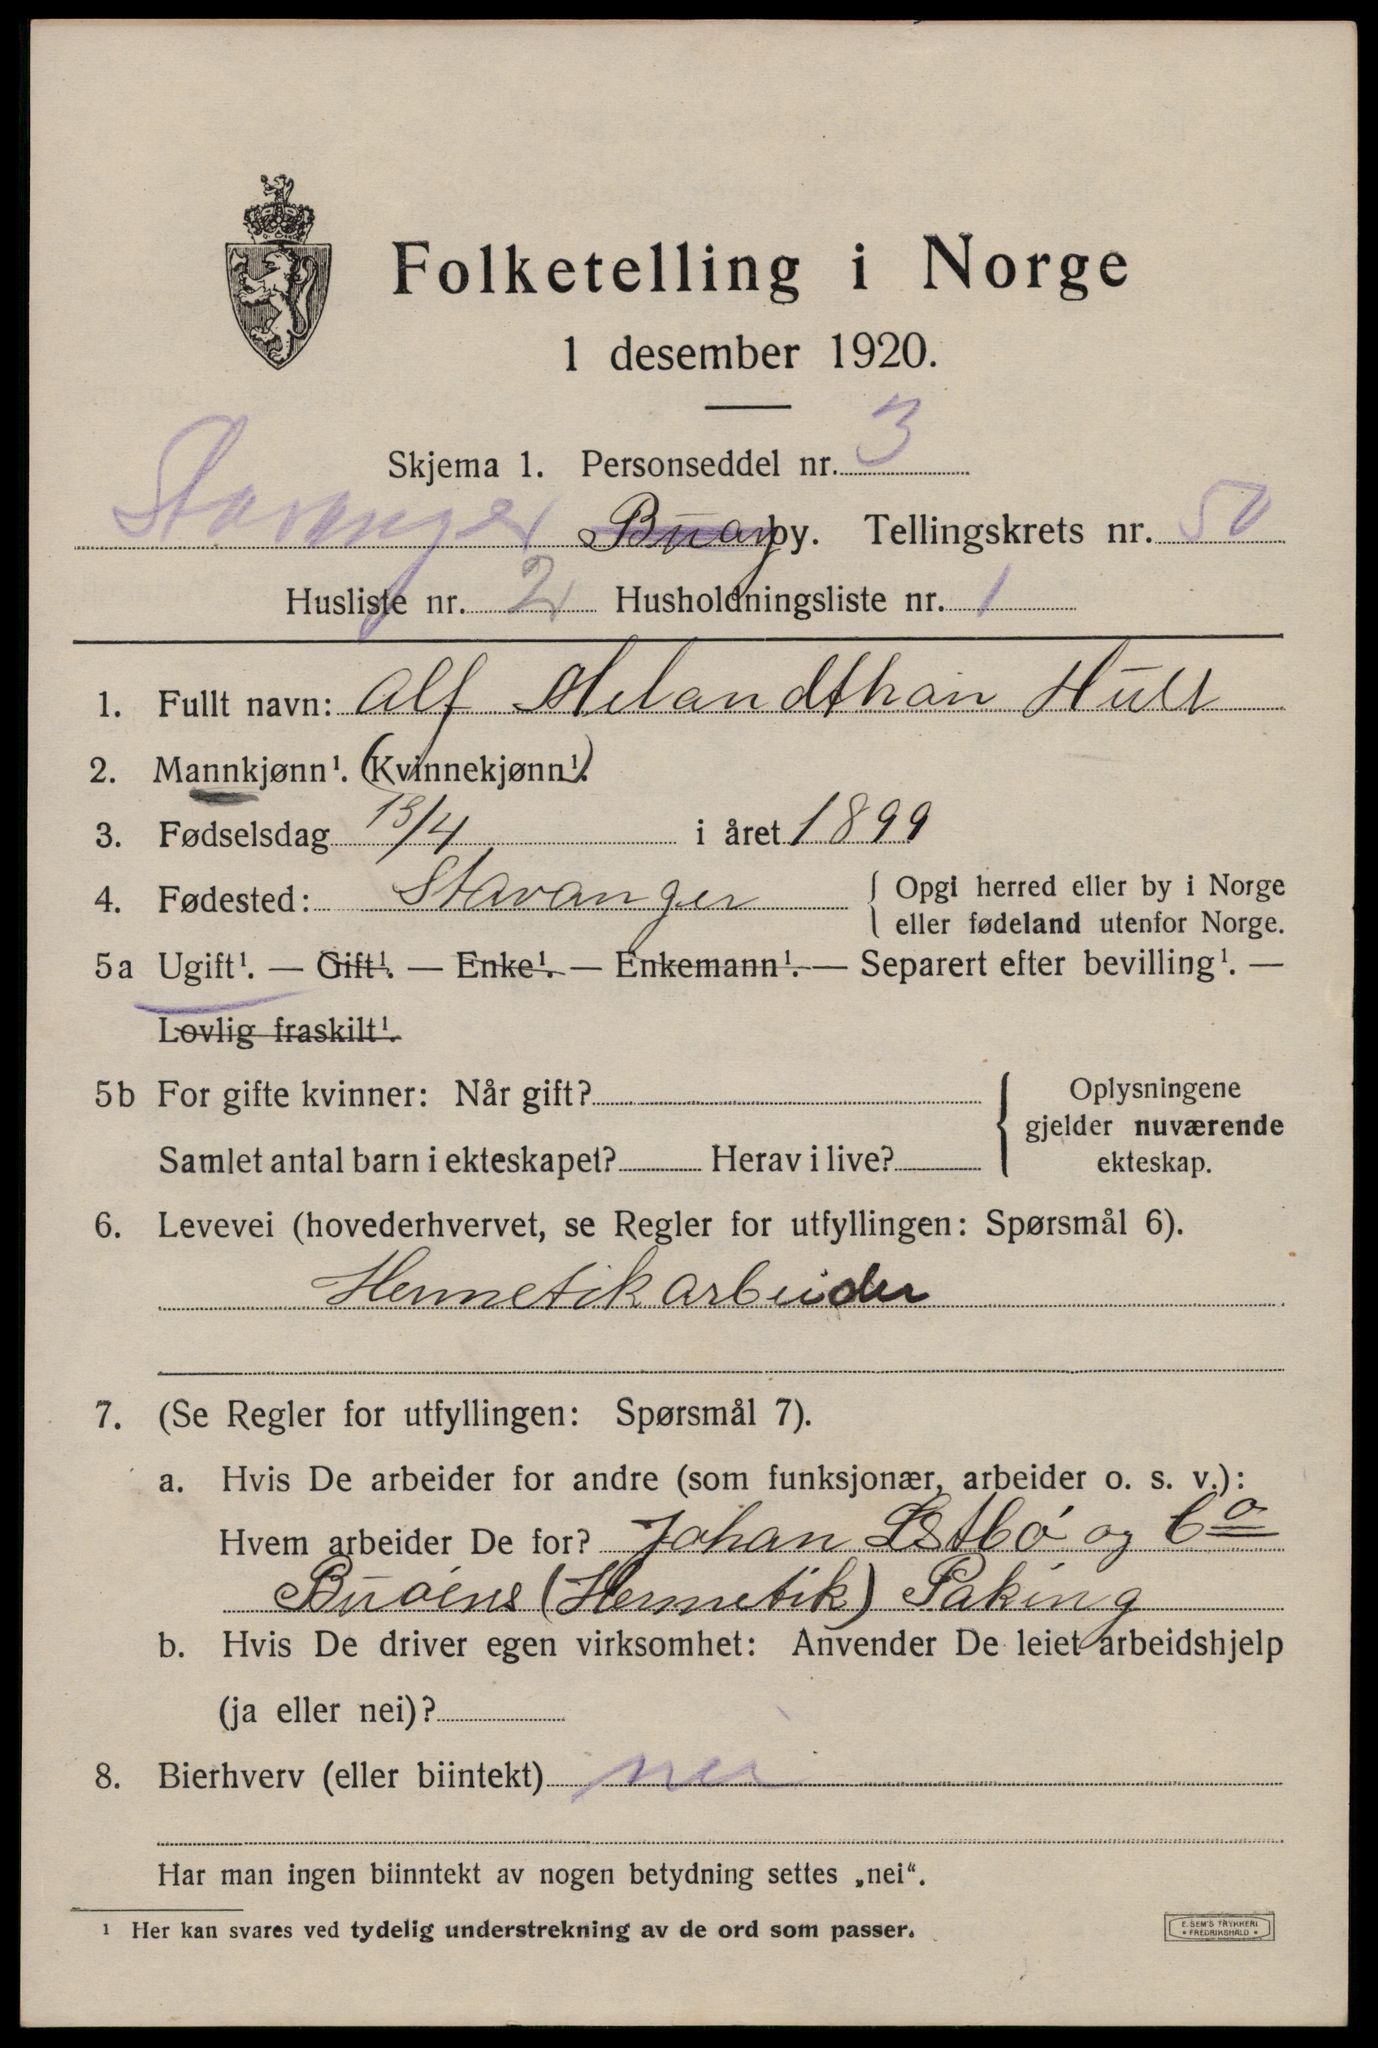 Folketelling i Norge
1 desember 1920.
Skjema 1. Personseddel nr. 3
Stavanger Buøy by. Tellingskrets nr. 50
Husliste nr. 2 Husholdningsliste nr. 1
1. Fullt navn: Alf Melandthon Hult
2. Mannkjønn¹. (Kvinnekjønn¹).
3. Fødselsdag 13/4 i året 1899
4. Fødested: Stavanger { Opgi herred eller by i Norge
eller fødeland utenfor Norge.
5a Ugift¹. — Gift¹. — Enke¹. — Enkemann¹. — Separert efter bevilling¹. —
Lovlig fraskilt¹.
5b For gifte kvinner: Når gift? { Oplysningene
gjelder nuværende
Samlet antal barn i ekteskapet? Herav i live? ekteskap.
6. Levevei (hovederhvervet, se Regler for utfyllingen: Spørsmål 6).
Hermetikarbeider
7. (Se Regler for utfyllingen: Spørsmål 7).
a. Hvis De arbeider for andre (som funksjonær, arbeider o. s. v.):
Hvem arbeider De for? Johan Østbø og Co
Buøens (Hermetik) Paking
b. Hvis De driver egen virksomhet: Anvender De leiet arbeidshjelp
(ja eller nei)?
8. Bierhverv (eller biintekt) nei
Har man ingen biinntekt av nogen betydning settes „nei“.
¹ Her kan svares ved tydelig understrekning av de ord som passer.
E. SEM'S TRYKKERI
• FREDRIKSHALD •